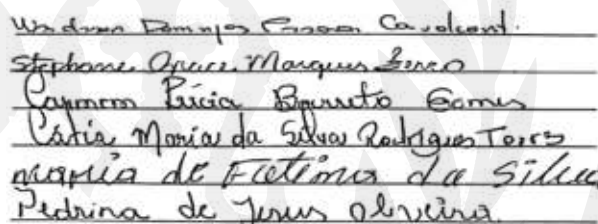 Domingos Pessoa Cavalcant.
Stephane Grace Marques
Carmem Lúcia Barreto Gomes
Cátia Maria da Silva Rodrigues Torres
maria de Fatima da Silva
Pedrina de Jesus Oliveira